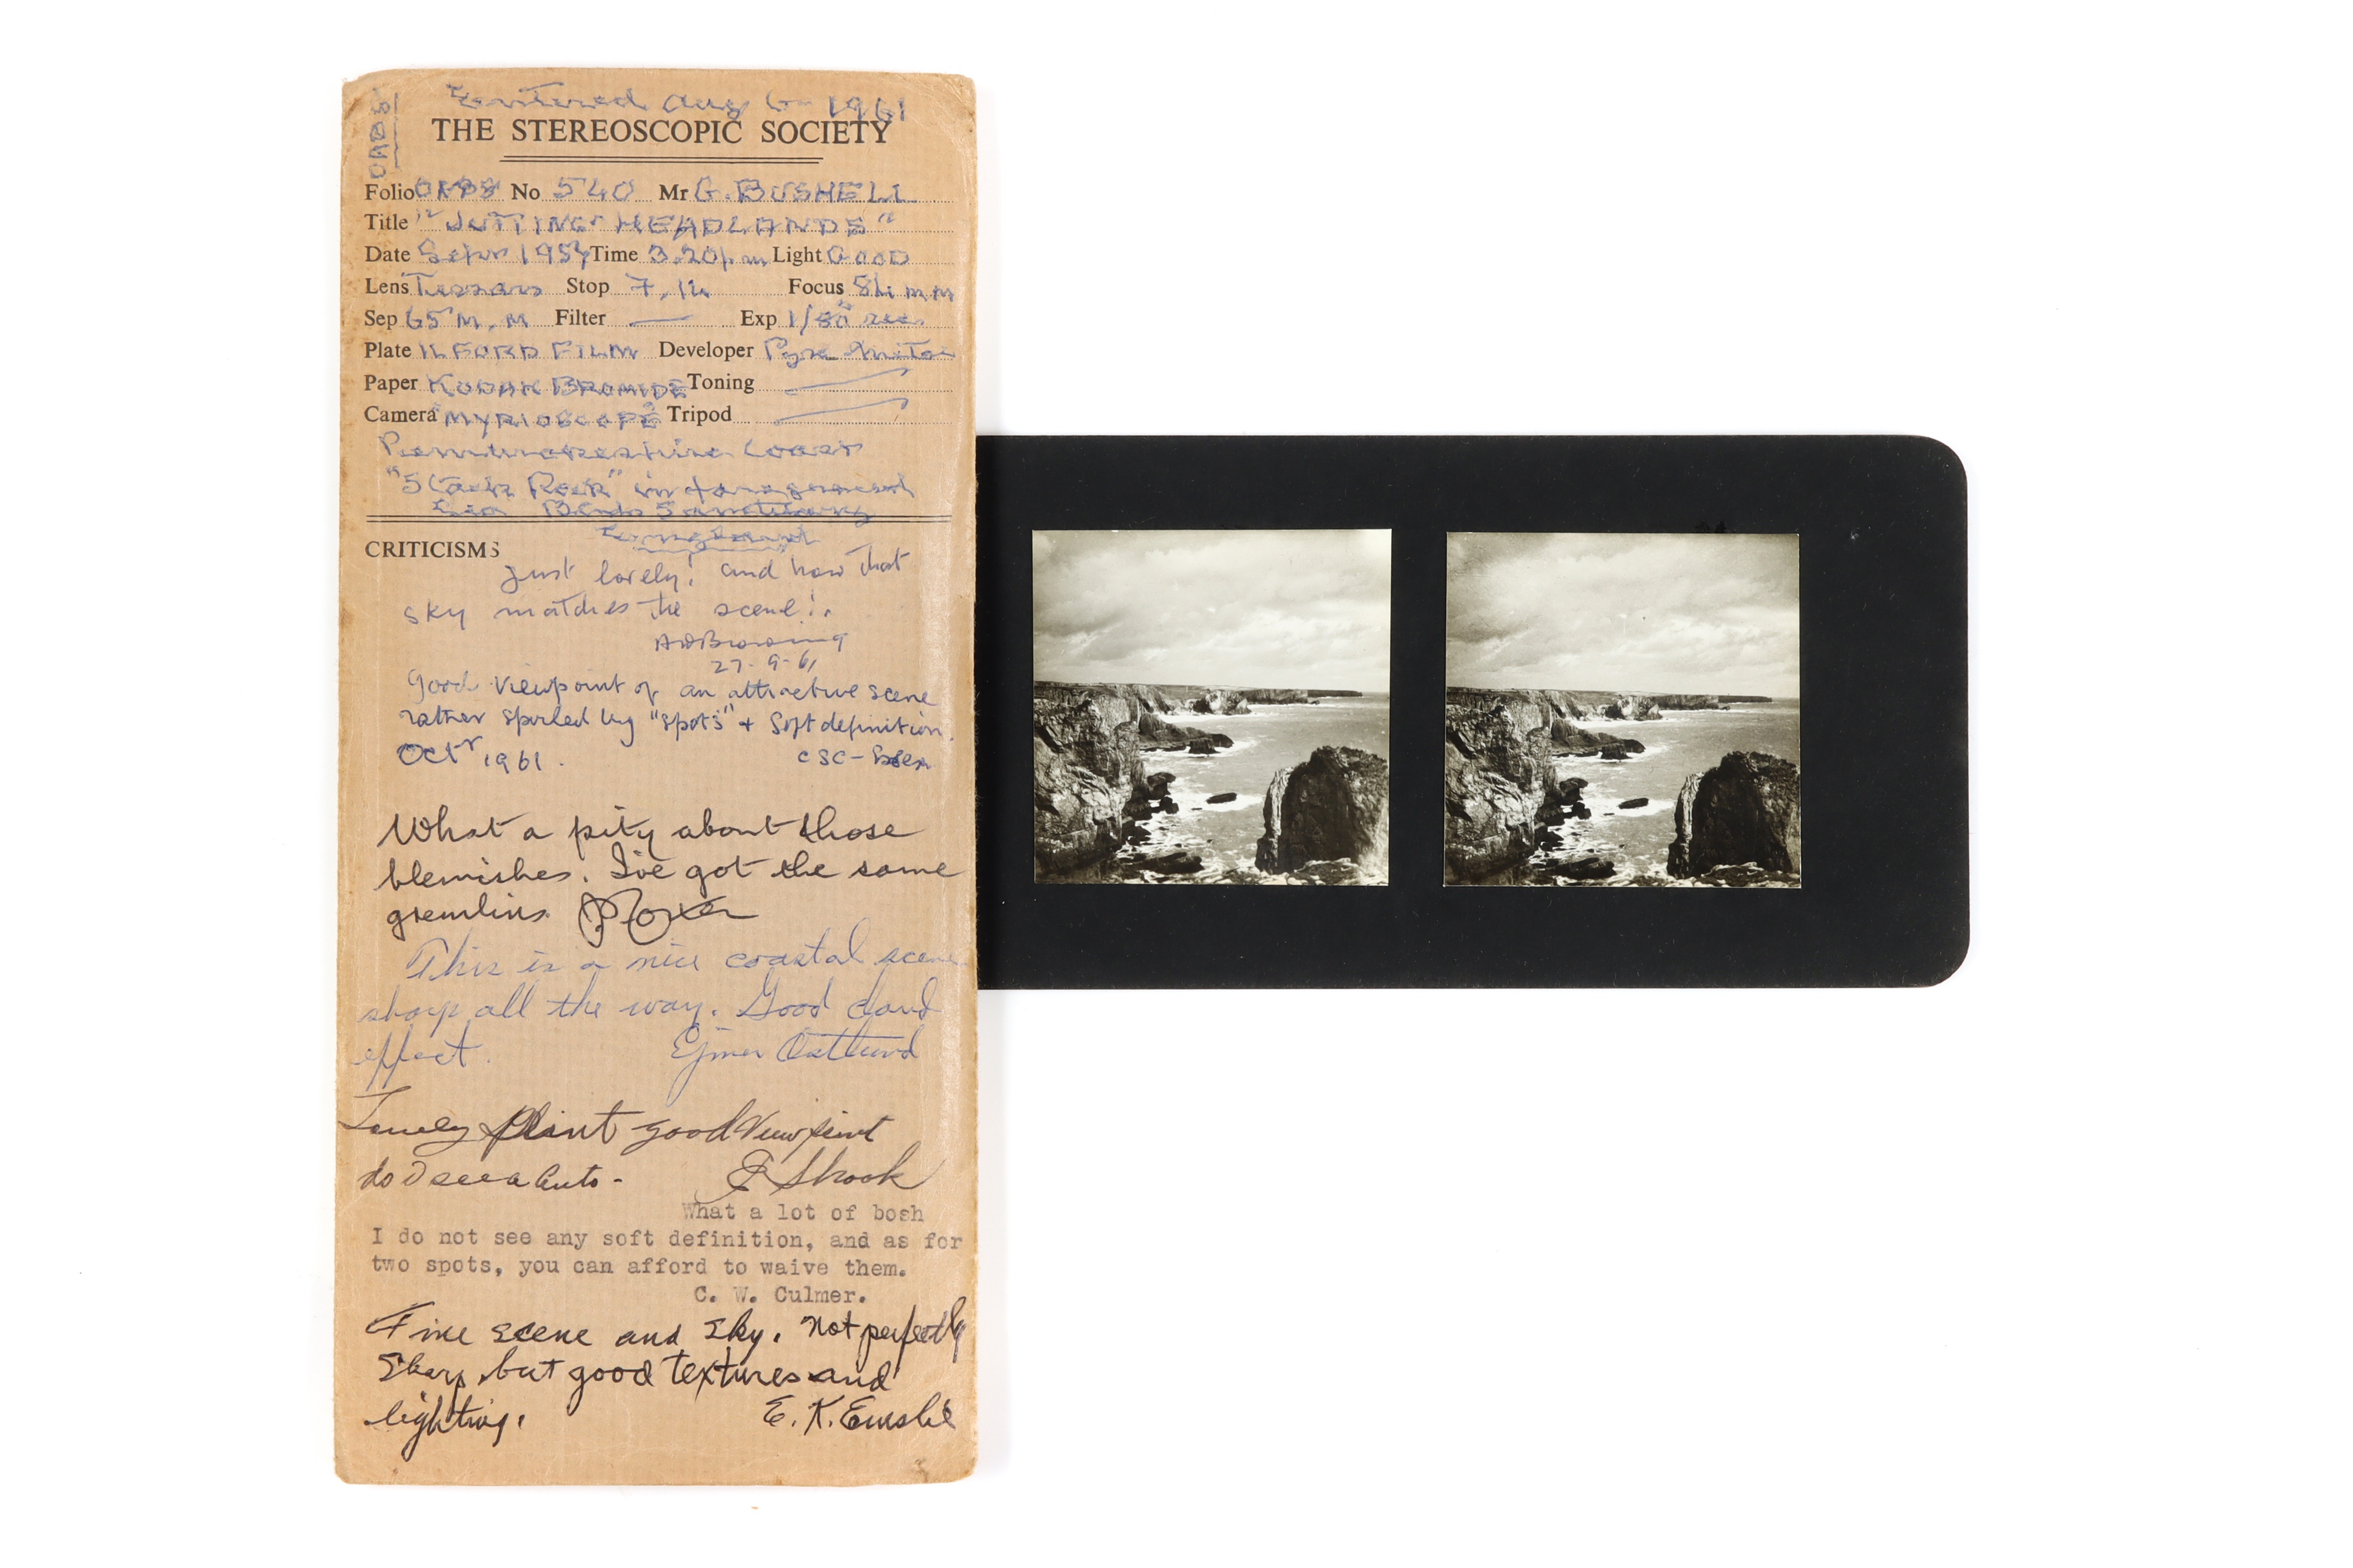 Entered Aug 6 - 1961
THE STEREOSCOPIC SOCIETY
Folio No 540 Mr G. BUSHELL
Title "JUTTING HEADLANDS"
Date Sept Time 3.20 p m Light GOOD
Lens Tessars Stop Focus mm
Sep 65 M.M Filter — Exp secs
Plate ILFORD FILM Developer Pyro
Paper KODAK BROMIDE Toning —
Camera "MYRIOSCOPE" Tripod —
Pembrokeshire Coast
"Stack Rock" in foreground
Sea Birds Sanctuary
England
CRITICISMS
Just lovely! and how that
sky matches the scene!.
27-9-61
Good viewpoint of an attractive scene
rather spoiled by "spots" + soft definition.
Octr 1961.
What a pity about those
blemishes. I've got the same
gremlins.
This is a nice coastal scene
sharp all the way. Good cloud
effect. Ejnar Ostlund
good viewpoint
J Shook
What a lot of bosh
I do not see any soft definition, and as for
two spots, you can afford to waive them.
C. W. Culmer.
Fine scene and sky. Not perfectly
sharp, but good textures and
lighting. E. K. Emslie